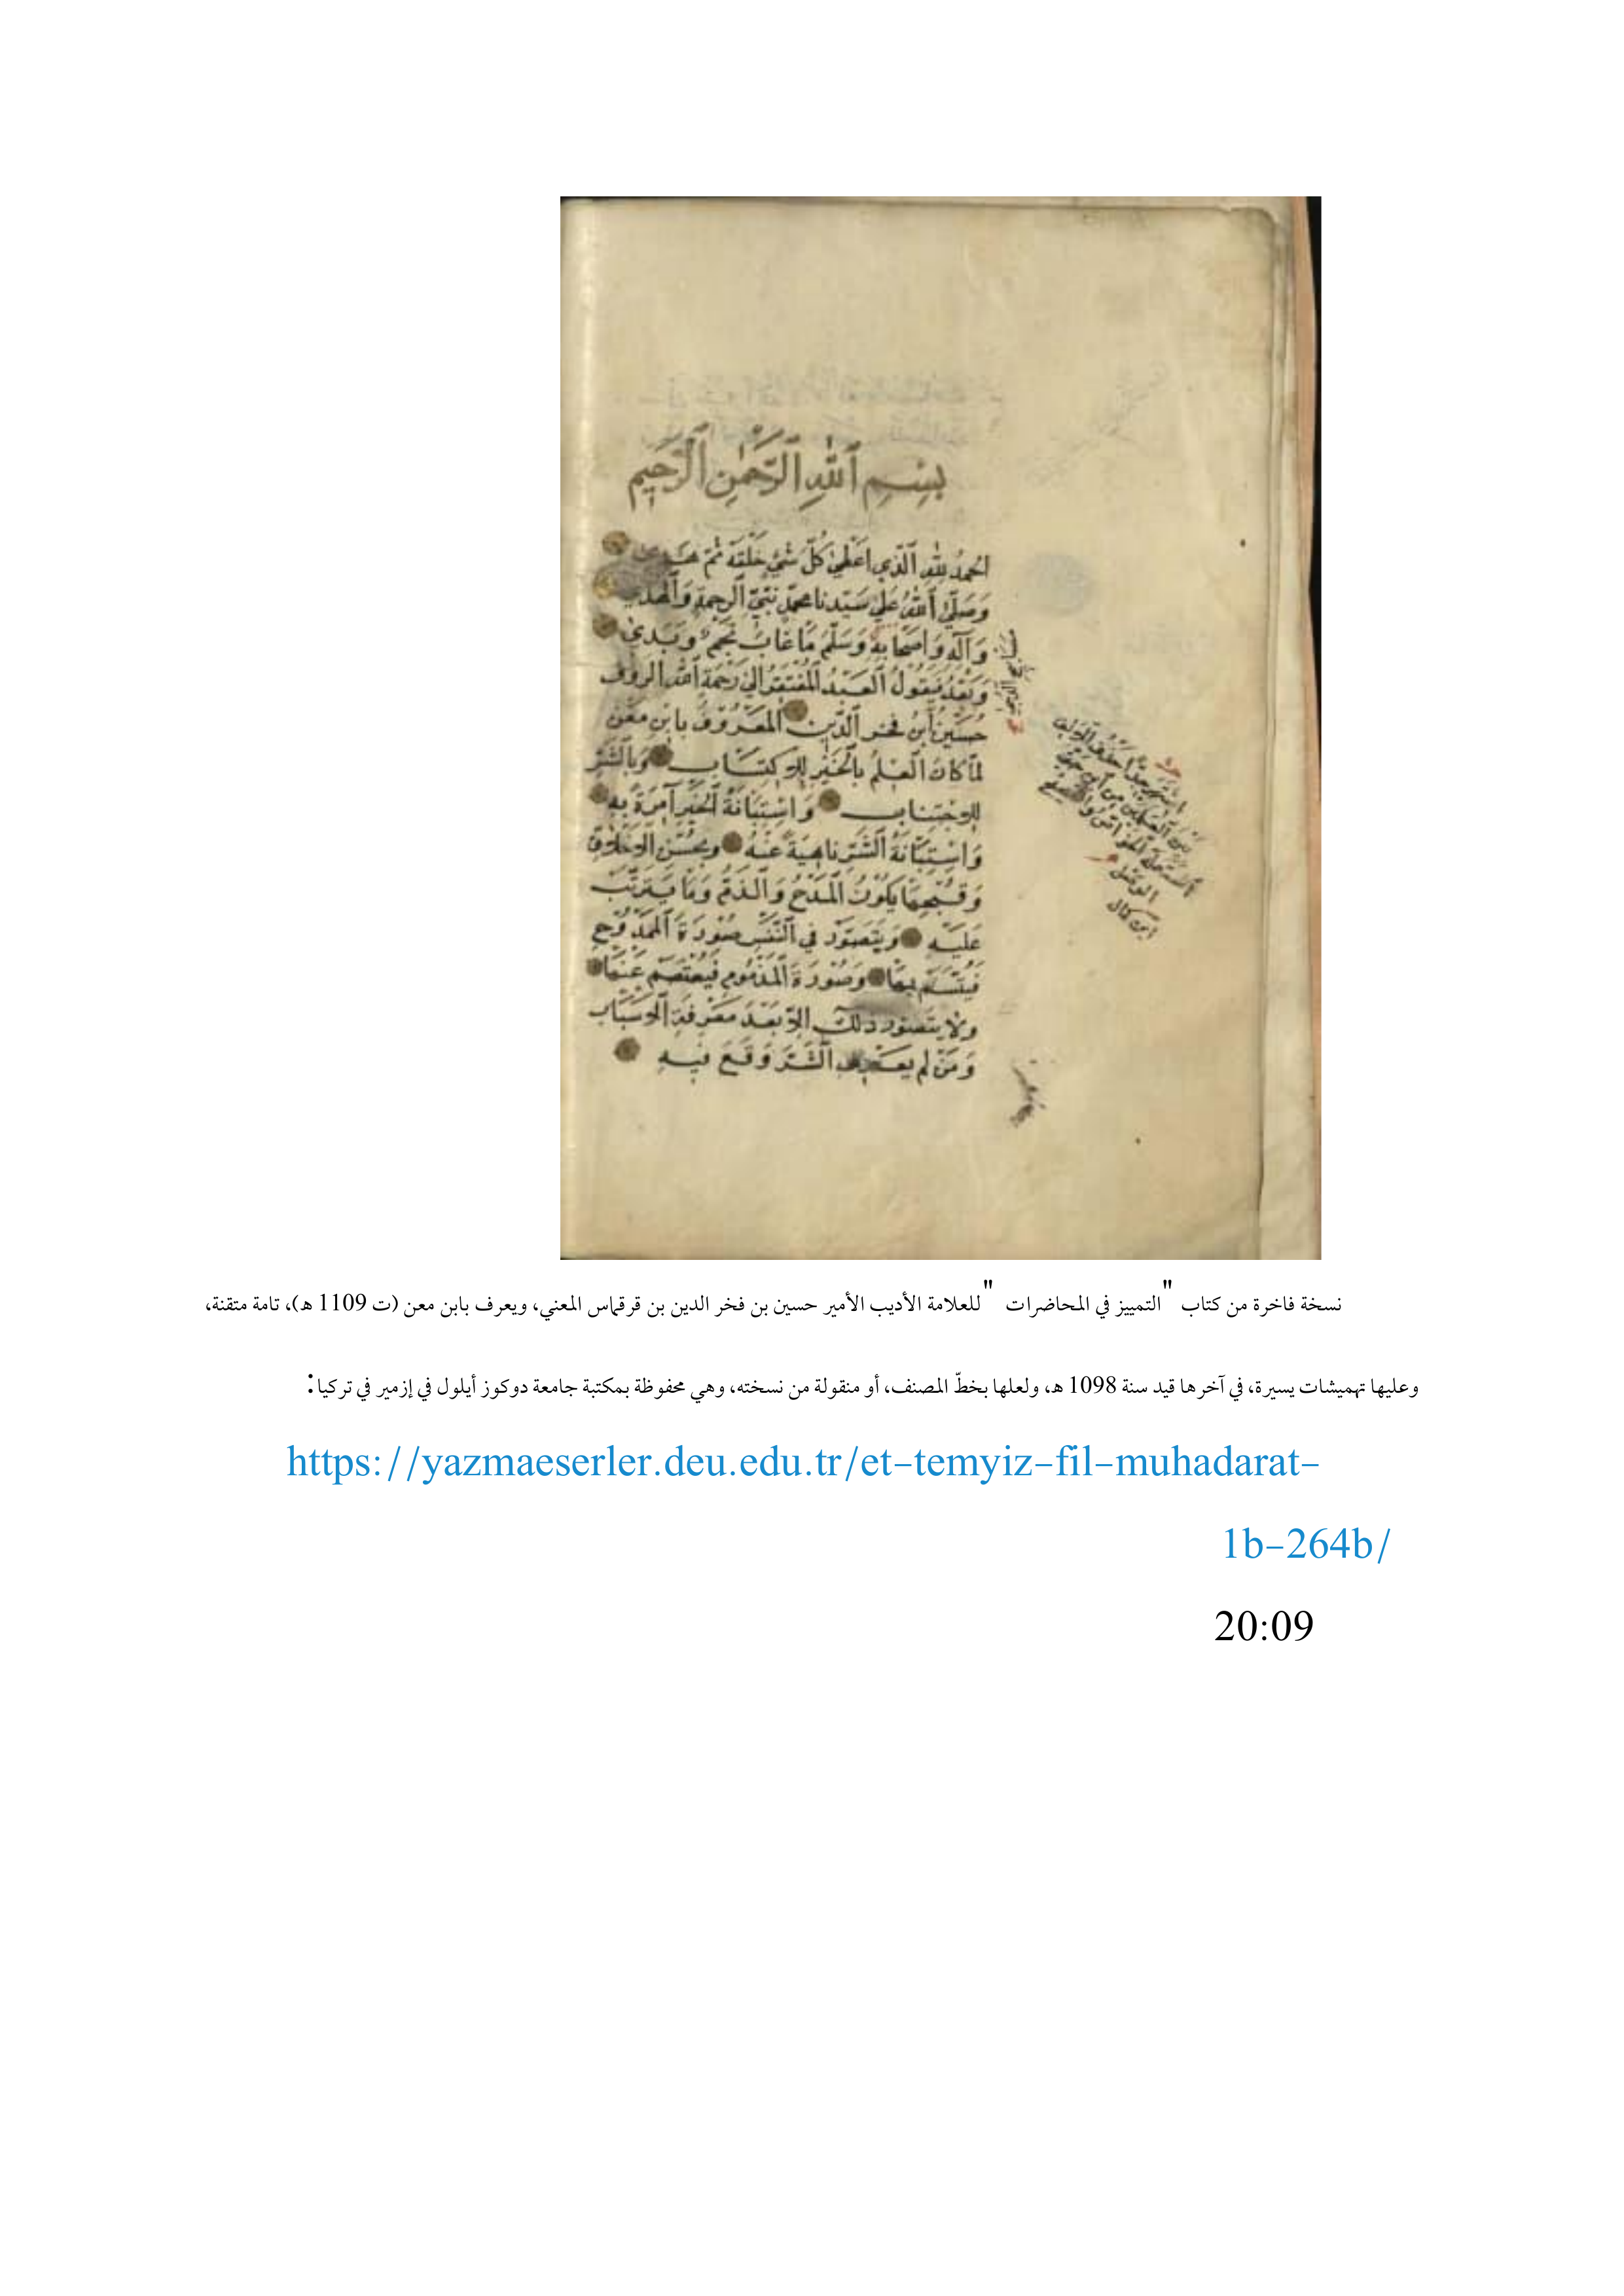 بِسْمِ ٱللَّهِ ٱلرَّحْمٰنِ ٱلرَّحِيمِ
الحمدُ للهِ الَّذي اعطى كُلَّ شيْءٍ خلقهُ ثمّ هدى
وَصَلَّى اللهُ عَلى سَيّدنا محمّدٍ نبيّ الرحمةِ وَالهُدى
وَآله وَاصحَابهِ وَسَلّمَ مَا غابَ نجمٌ وبَدى
وَبَعْدُ فيَقُولُ العَبْدُ المُفْتقرُ الى رَحْمَةِ الله الرؤف
حُسَيْن ابنُ فخر الدّين المَعرُوفُ بابن مَعْن
لمّا كانَ العِلْمُ بالخَيْر للاكتسَاب وَبالشَّرِّ
للاجتناب وَاسْتِبَانَةُ الخَيْرِ آمِرَةً بهِ
وَاسْتِبَانَةُ الشَّرِّ ناهيَةً عَنْهُ وبحُسْن الاخلاق
وَقُبْحِهَا يَكُونُ المَدْحُ وَالذَمُّ وَمَا يَترَتّبُ
عَليْهِ وَيَتَصَوَّر في النّفسِ صُورَةَ المَمْدُوحِ
فيَتّسَم بهَا وَصُورَةَ المَذمُومِ فيَعْتَصم عَنهَا
ولا يتصَوّر ذلكَ الا بَعْدَ مَعْرفَةِ الاسْبَاب
وَمَنْ لم يعرف الشَّرَّ وَقَعَ فيهِ
نسخة فاخرة من كتاب "التمييز في المحاضرات " للعلامة الأديب الأمير حسين بن فخر الدين بن قرقماس المعني، ويعرف بابن معن (ت 1109 هـ)، تامة متقنة،
وعليها تهميشات يسيرة، في آخرها قيد سنة 1098 هـ، ولعلها بخطّ المصنف، أو منقولة من نسخته، وهي محفوظة بمكتبة جامعة دوكوز أيلول في إزمير في تركيا:
https://yazmaeserler.deu.edu.tr/et-temyiz-fil-muhadarat-
1b-264b/
20:09